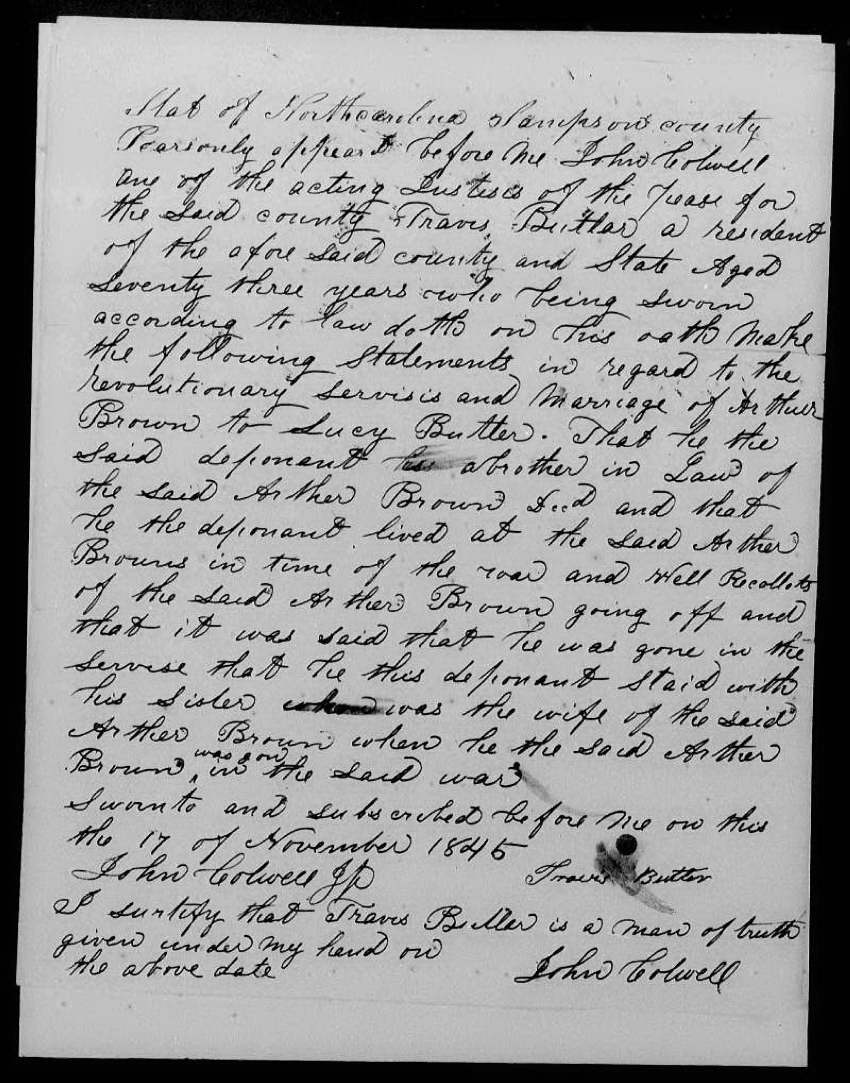 Stat of Northcarolina Sampson county
Pearsonly appeard before me John Colwell
one of the acting Justiscs of the Pease for
the said county Travis Butlar a resident
of the afore said county and State Aged
Seventy three years who being sworn
according to law doth on his oath make
the following Statements in regard to the
revolutionary servisis and marriage of Arthur
Brown to Lucy Butler. That he the
said deponant a brother in Law of
the said Arther Brown Decd and that
he the deponant lived at the said Arther
Browns in time of the war and well Recollets
of the said Arther Brown going off and
that it was said that he was gone in the
servise that he this deponant staid with
his sister was the wife of the said
Arther Brown when he the said Arther
Brown was in the said war
Swornto and subscribed before me on this
the 17 of November 1845
John Colwell Jp Travis Butler
I surtify that Travis Butler is a man of truth
given under my hand on
the above date John Colwell